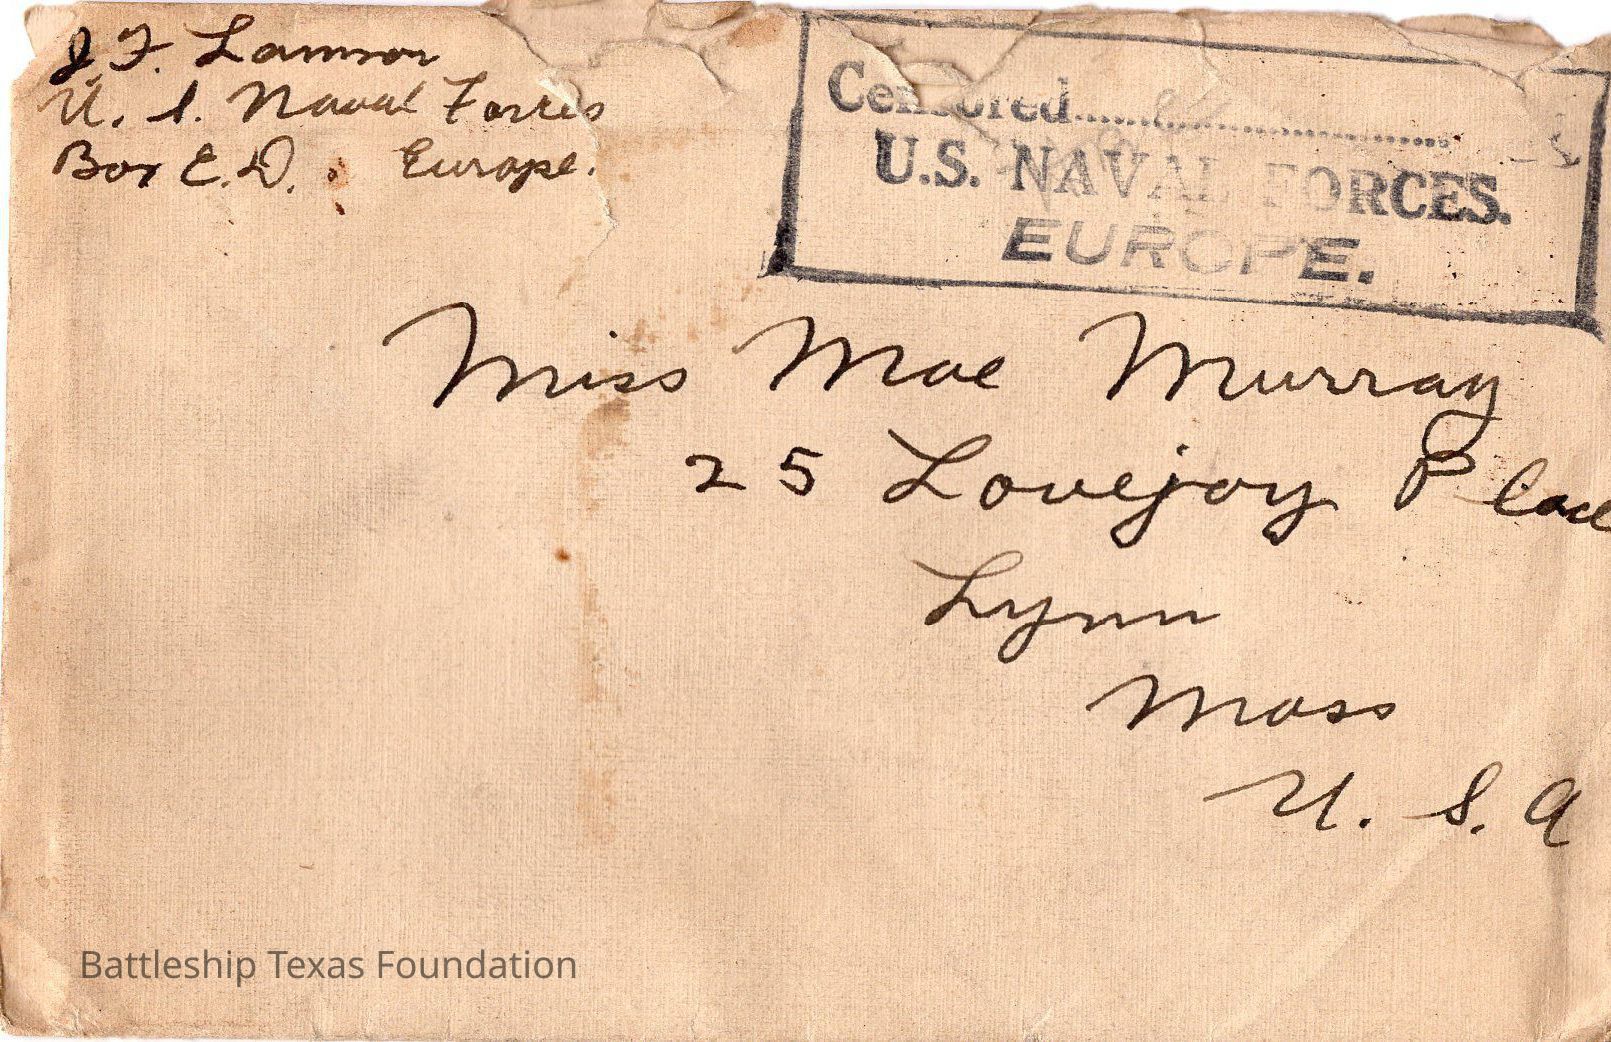 J. F. Lamson
U. S. Naval Forces
Box E.D. Europe.
Censored..............................
U.S. NAVAL FORCES.
EUROPE.
Miss Mae Murray
25 Lovejoy Place
Lynn
Mass
U. S. A
Battleship Texas Foundation